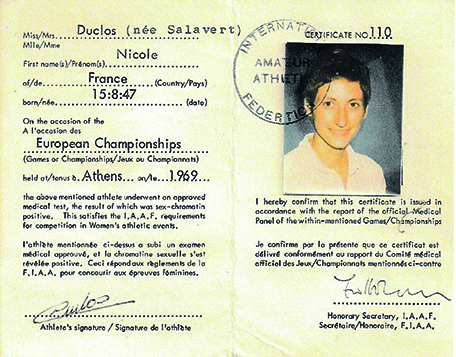 Miss/Mrs. Duclos (née Salavert)
Mlle/Mme
Nicole
First name(s)/Prénom(s).
of/de France (Country/Pays)
born/née 15:8:47 (date)
On the occasion of the
A l'occasion des
European Championships
(Games or Championships/Jeux ou Championnats)
held at/tenus à Athens on/le 1969
the above mentioned athlete underwent an approved
medical test, the result of which was sex-chromatin
positive. This satisfies the I.A.A.F. requirements
for competition in Women's athletic events.
l'athlète mentionnée ci-dessus a subi un examen
médical approuvé, et la chromatine sexuelle s'est
révélée positive. Ceci répond aux règlements de la
F.I.A.A. pour concourir aux épreuves féminines.
Duclos
Athlete's signature / Signature de l'athlète
CERTIFICATE NO. 110
INTERNATI
AMATEUR
ATHLETIC
FEDERATIO
I hereby confirm that this certificate is issued in
accordance with the report of the official Medical
Panel of the within-mentioned Games/Championships
Je confirme par la présente que ce certificat est
délivré conformément au rapport du Comité médical
officiel des Jeux/Championnats mentionnés ci-contre
Honorary Secretary, I.A.A.F.
Secrétaire/Honoraire, F.I.A.A.